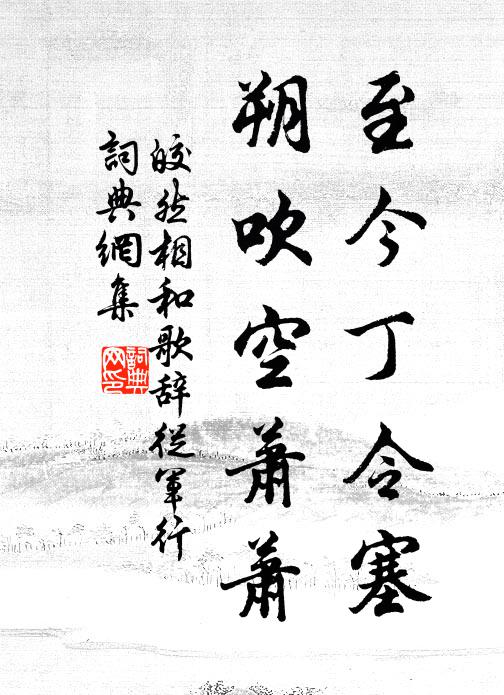 至今丁令塞
朔吹空蕭蕭
皎然相和歌辞從軍行
詞典網集
詞典网印